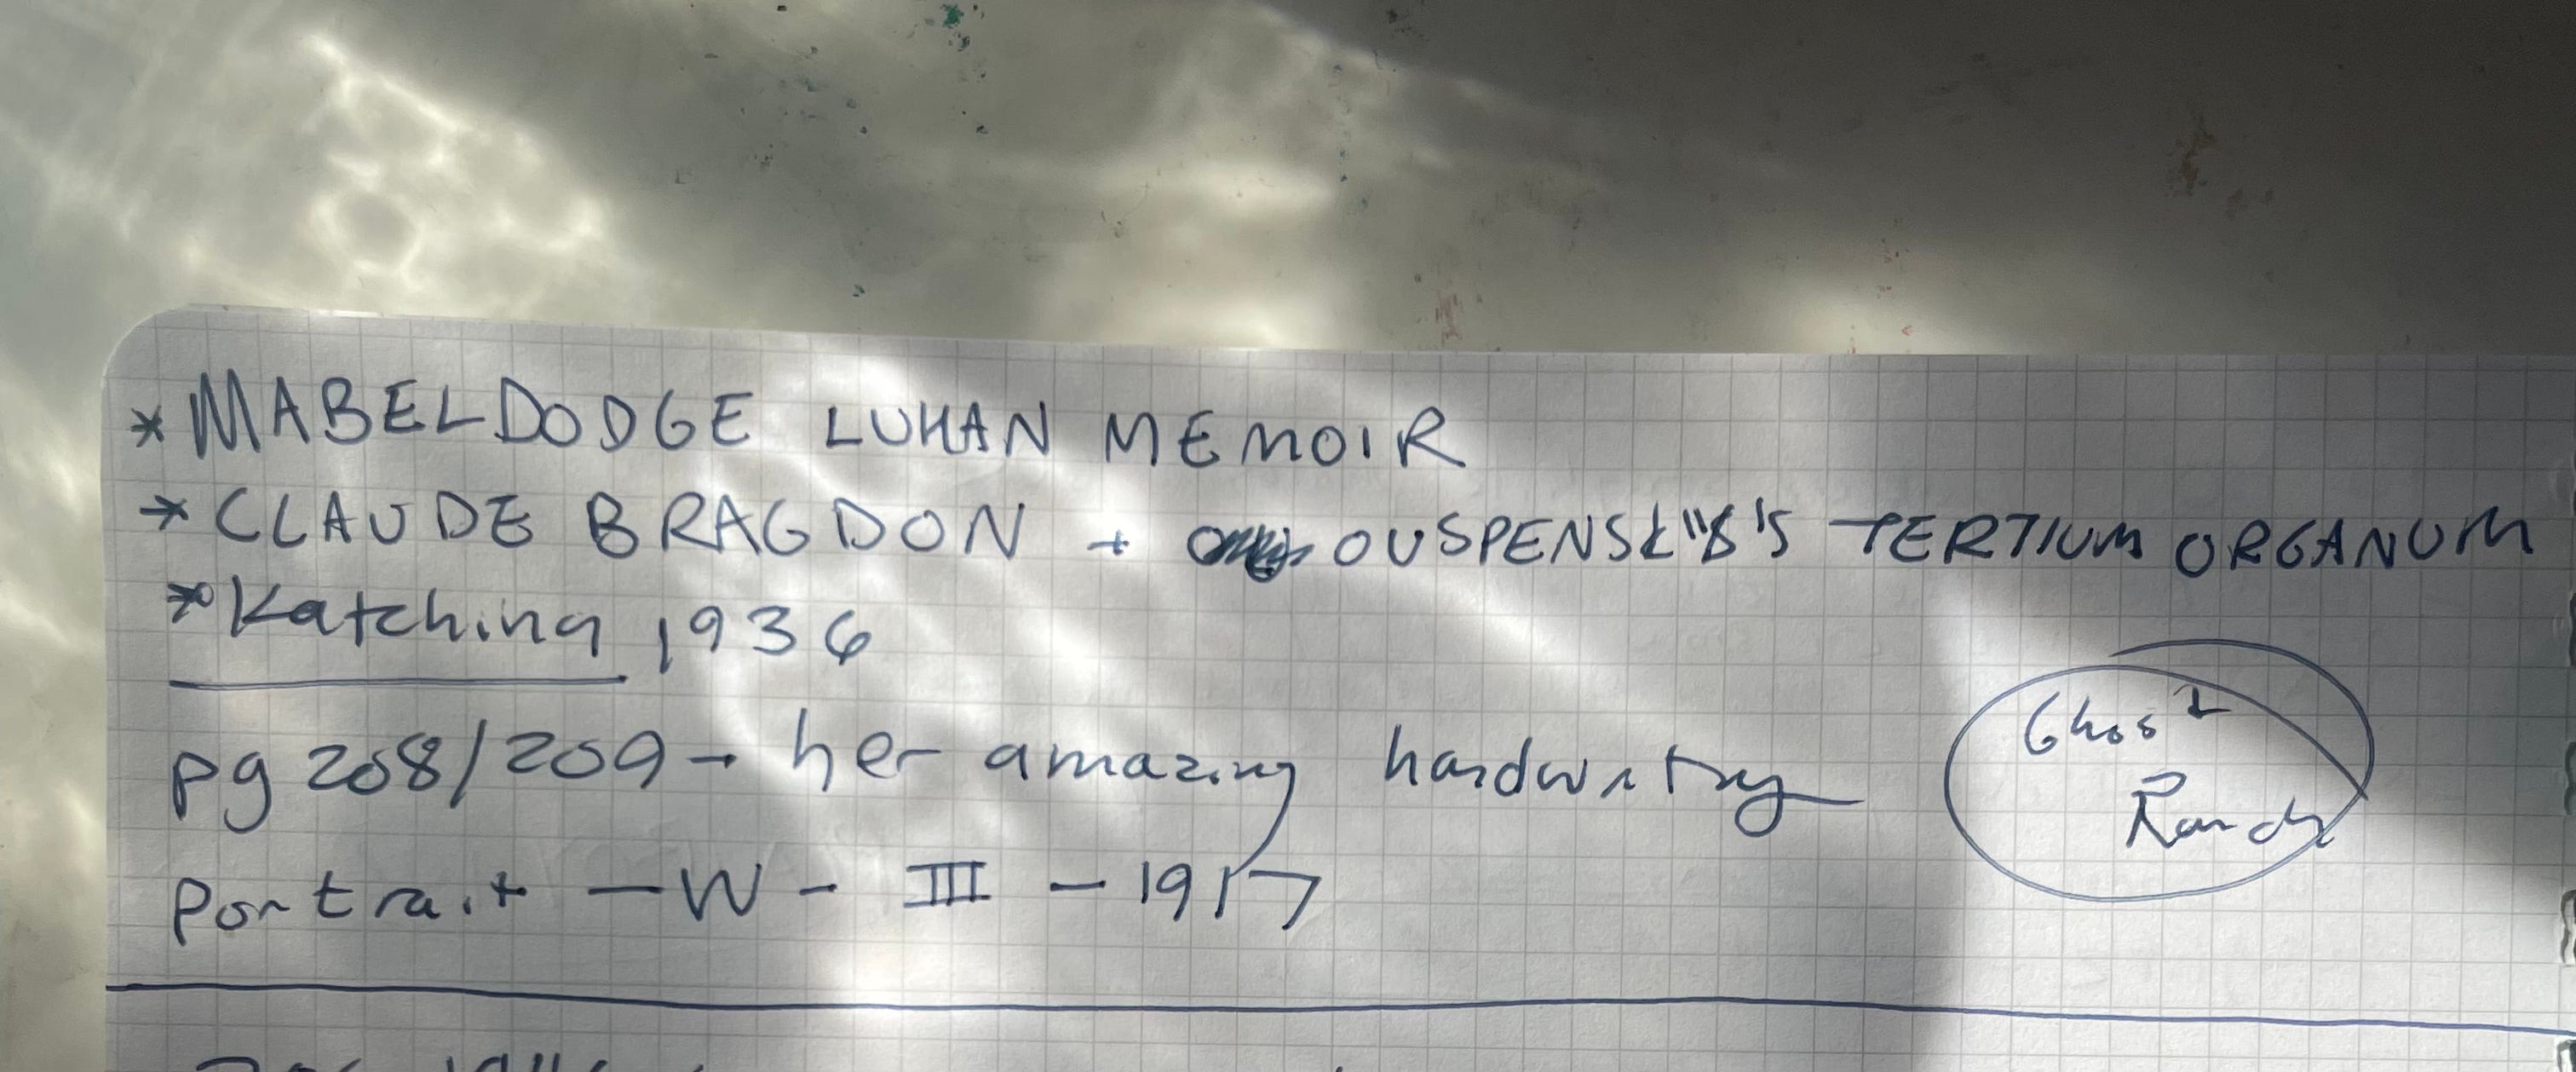 * MABEL DODGE LUHAN MEMOIR
* CLAUDE BRAGDON + OUSPENSKII'S TERTIUM ORGANUM
* Katchina 1936
pg 208/209 → her amazing handwriting
Ghost
Ranch
Portrait - W - III - 1917